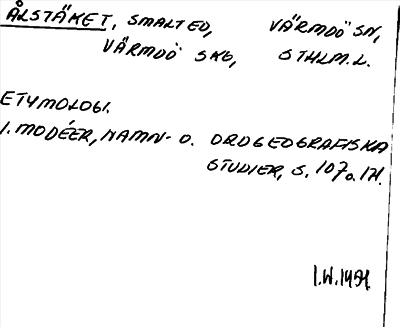 ÅLSTÄKET, SMALT ED, VÄRMDÖ SN,
VÄRMDÖ SKG, STHLM.L.
ETYMOLOGI.
I. MODÉER, NAMN- O. ORDGEOGRAFISKA
STUDIER, S. 107 o. 171.
I.W. 1951.